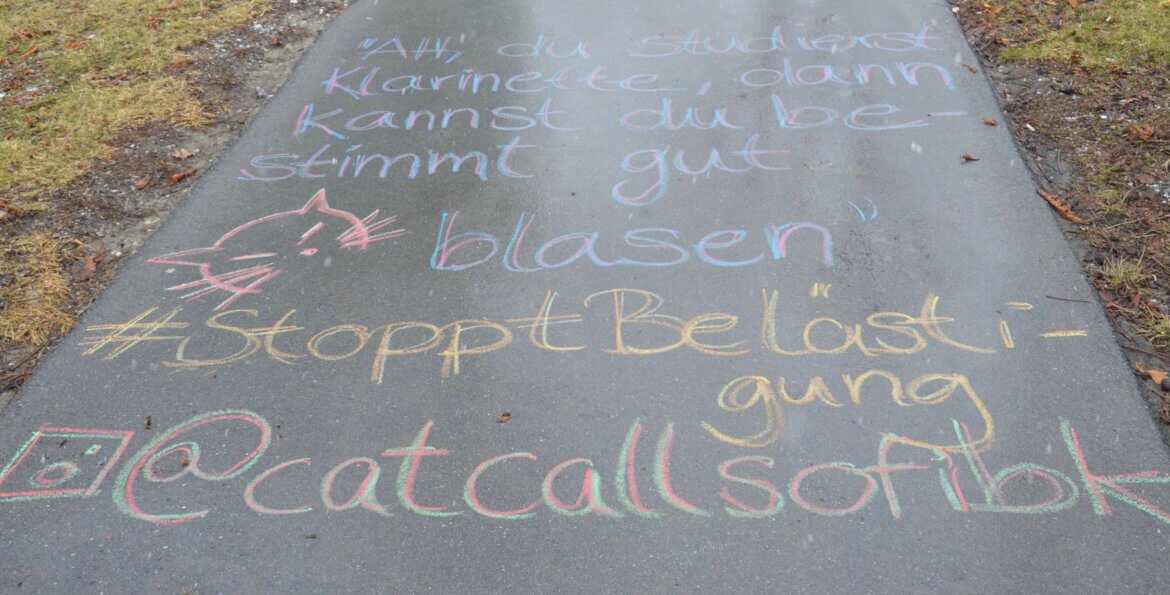 "Ah, du studierst
Klarinette, dann
kannst du be-
stimmt gut
blasen"
#StopptBelästi-
gung
@catcallsofibk